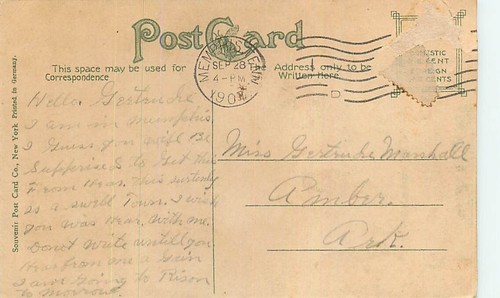 Post Card
This space may be used for Correspondence
Address only to be Written Here.
MEMPHIS, TENN.
SEP 28
4-PM
190
Souvenir Post Card Co., New York Printed in Germany.
Hello. Gertrude
I am in Memphis
I Guess you will Be
Supperised to Get this
From hear. This surtenly
is a swell Town. I wish
you was hear. With me.
Donot write untill you
hear from me a Gain
I am Going to Rison
to morrow.
Miss Gertrude Marshall
Amber.
Ark.